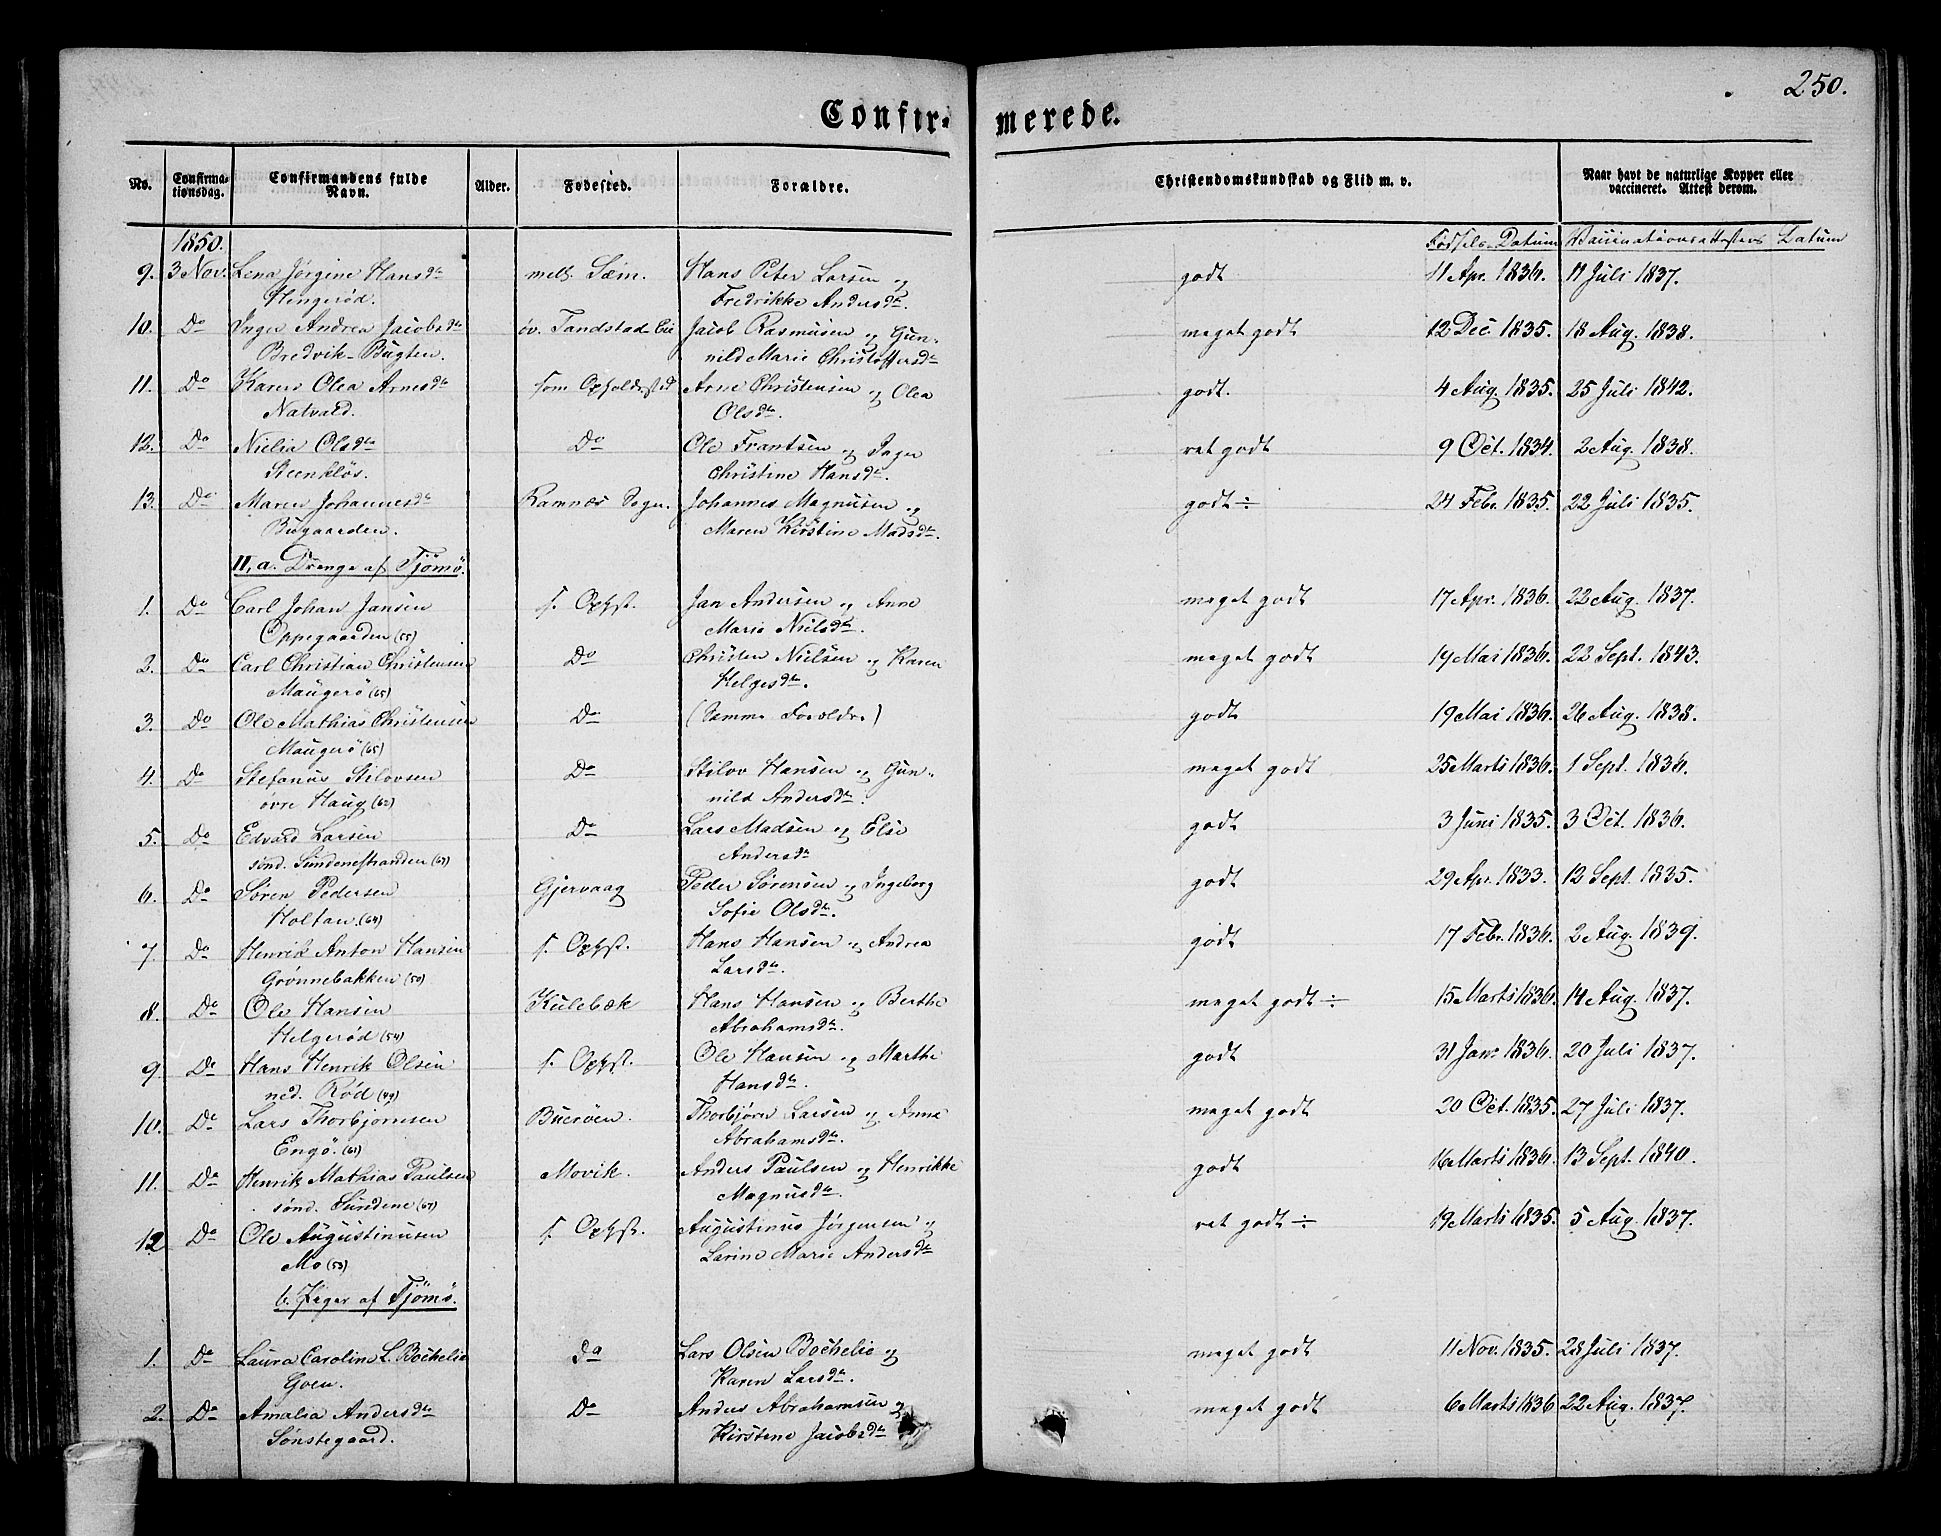 250.
Confir- merede.
No. Confirmationsdag. Confirmandens fulde Navn. Alder. Fødested. Forældre. Christendomskundskab og Flid m. v. Naar havt de naturlige Kopper eller vaccineret. Attest derom.
1850. Fødsels-Datum Vaccinationsattestens Datum
9. 3 Nov. Lena Jørgine Hansdtr mell. Sæm. Hans Peter Larsen og godt 11 Apr. 1836. 11 Juli 1837.
Hengerød. Fredrikke Andersdtr.
10. Do Inger Andrea Jacobsdtr øv. Tandstad-Eie Jacob Rasmusen og Gun- meget godt 12 Dec. 1835. 18 Aug. 1838.
Bredvik-Bugten. nild Marie Christoffersdtr
11. Do Karen Olea Arnesdtr som Opholdssted Arne Christensen og Olea godt. 4 Aug. 1835. 25 Juli 1842.
Natvald. Olsdtr.
12. Do Nielia Olsdtr Do Ole Frantsen og Inger ret godt 9 Oct. 1834. 2 Aug. 1838.
Steenkløs. Christine Hansdtr.
13. Do Maren Johannesdtr Ramnæs Sogn. Johannes Magnusen og godt ÷ 24 Febr. 1835. 22 Juli 1835.
Bugaarden. Maren Kirstine Madsdtr.
II, a. Drenge af Tjømø.
1. Do Carl Johan Jansen s. Ophst. Jan Andersen og Anne meget godt 17 Apr. 1836. 22 Aug. 1837.
Oppegaarden (55) Marie Nielsdtr.
2. Do Carl Christian Christensen Do Christen Nielsen og Karen meget godt 14 Mai 1836. 22 Sept. 1843.
Maugerø (65) Helgesdtr.
3. Do Ole Mathias Christensen Do (Samme Forældre) godt 19 Mai 1836. 26 Aug. 1838.
Maugerø (65)
4. Do Stefanus Stilovsen Do Stilov Hansen og Gun- meget godt 25 Marts 1836. 1 Sept. 1836.
øvre Haug (62) nild Andersdtr.
5. Do Edvard Larsen Do Lars Madsen og Else godt 3 Juni 1835. 3 Oct. 1836.
sønd. Sundenestranden (67) Andersdtr
6. Do Søren Pedersen Gjervaag Peder Sørensen og Ingeborg godt 29 Apr. 1833. 12 Sept. 1835.
Holtan (64) Sofie Olsdtr.
7. Do Henrik Anton Hansen s. Ophst. Hans Hansen og Andrea godt 17 Febr. 1836. 2 Aug. 1839.
Grønnebakken (50) Larsdtr.
8. Do Ole Hansen Kulebæk Hans Hansen og Berthe meget godt ÷ 15 Marts 1836. 14 Aug. 1837.
Helgerød (54) Abrahamsdtr.
9. Do Hans Henrik Olsen s. Ophst. Ole Hansen og Marthe godt 31 Janr. 1836. 20 Juli 1837.
ned. Rød (49) Hansdtr.
10. Do Lars Thorbjørnsen Buerøen. Thorbjørn Larsen og Anne meget godt 20 Oct. 1835. 27 Juli 1837.
Engø. (61) Abrahamsdtr.
11. Do Henrik Mathias Paulsen Movik. Anders Paulsen og Henrikke godt 16 Marts 1836. 13 Sept. 1840.
sønd. Sundene (67) Magnusdtr.
12 Do Ole Augustinusen s. Ophst. Augustinus Jørgensen og ret godt ÷ 19 Marts 1835. 5 Aug. 1837.
Mo (53) Larine Marie Andersdtr
b. Piger af Tjømø.
1. Do Laura Caroline L. Bochelie do Lars Olsen Bochelie og meget godt 11 Nov. 1835. 28 Juli 1837.
Goen. Karen Larsdtr.
2. Do Amalia Andersdtr Do Anders Abrahamsen og meget godt 6 Marts 1836 22 Aug. 1837.
Sønstegaard. Kirstene Jacobsdtr